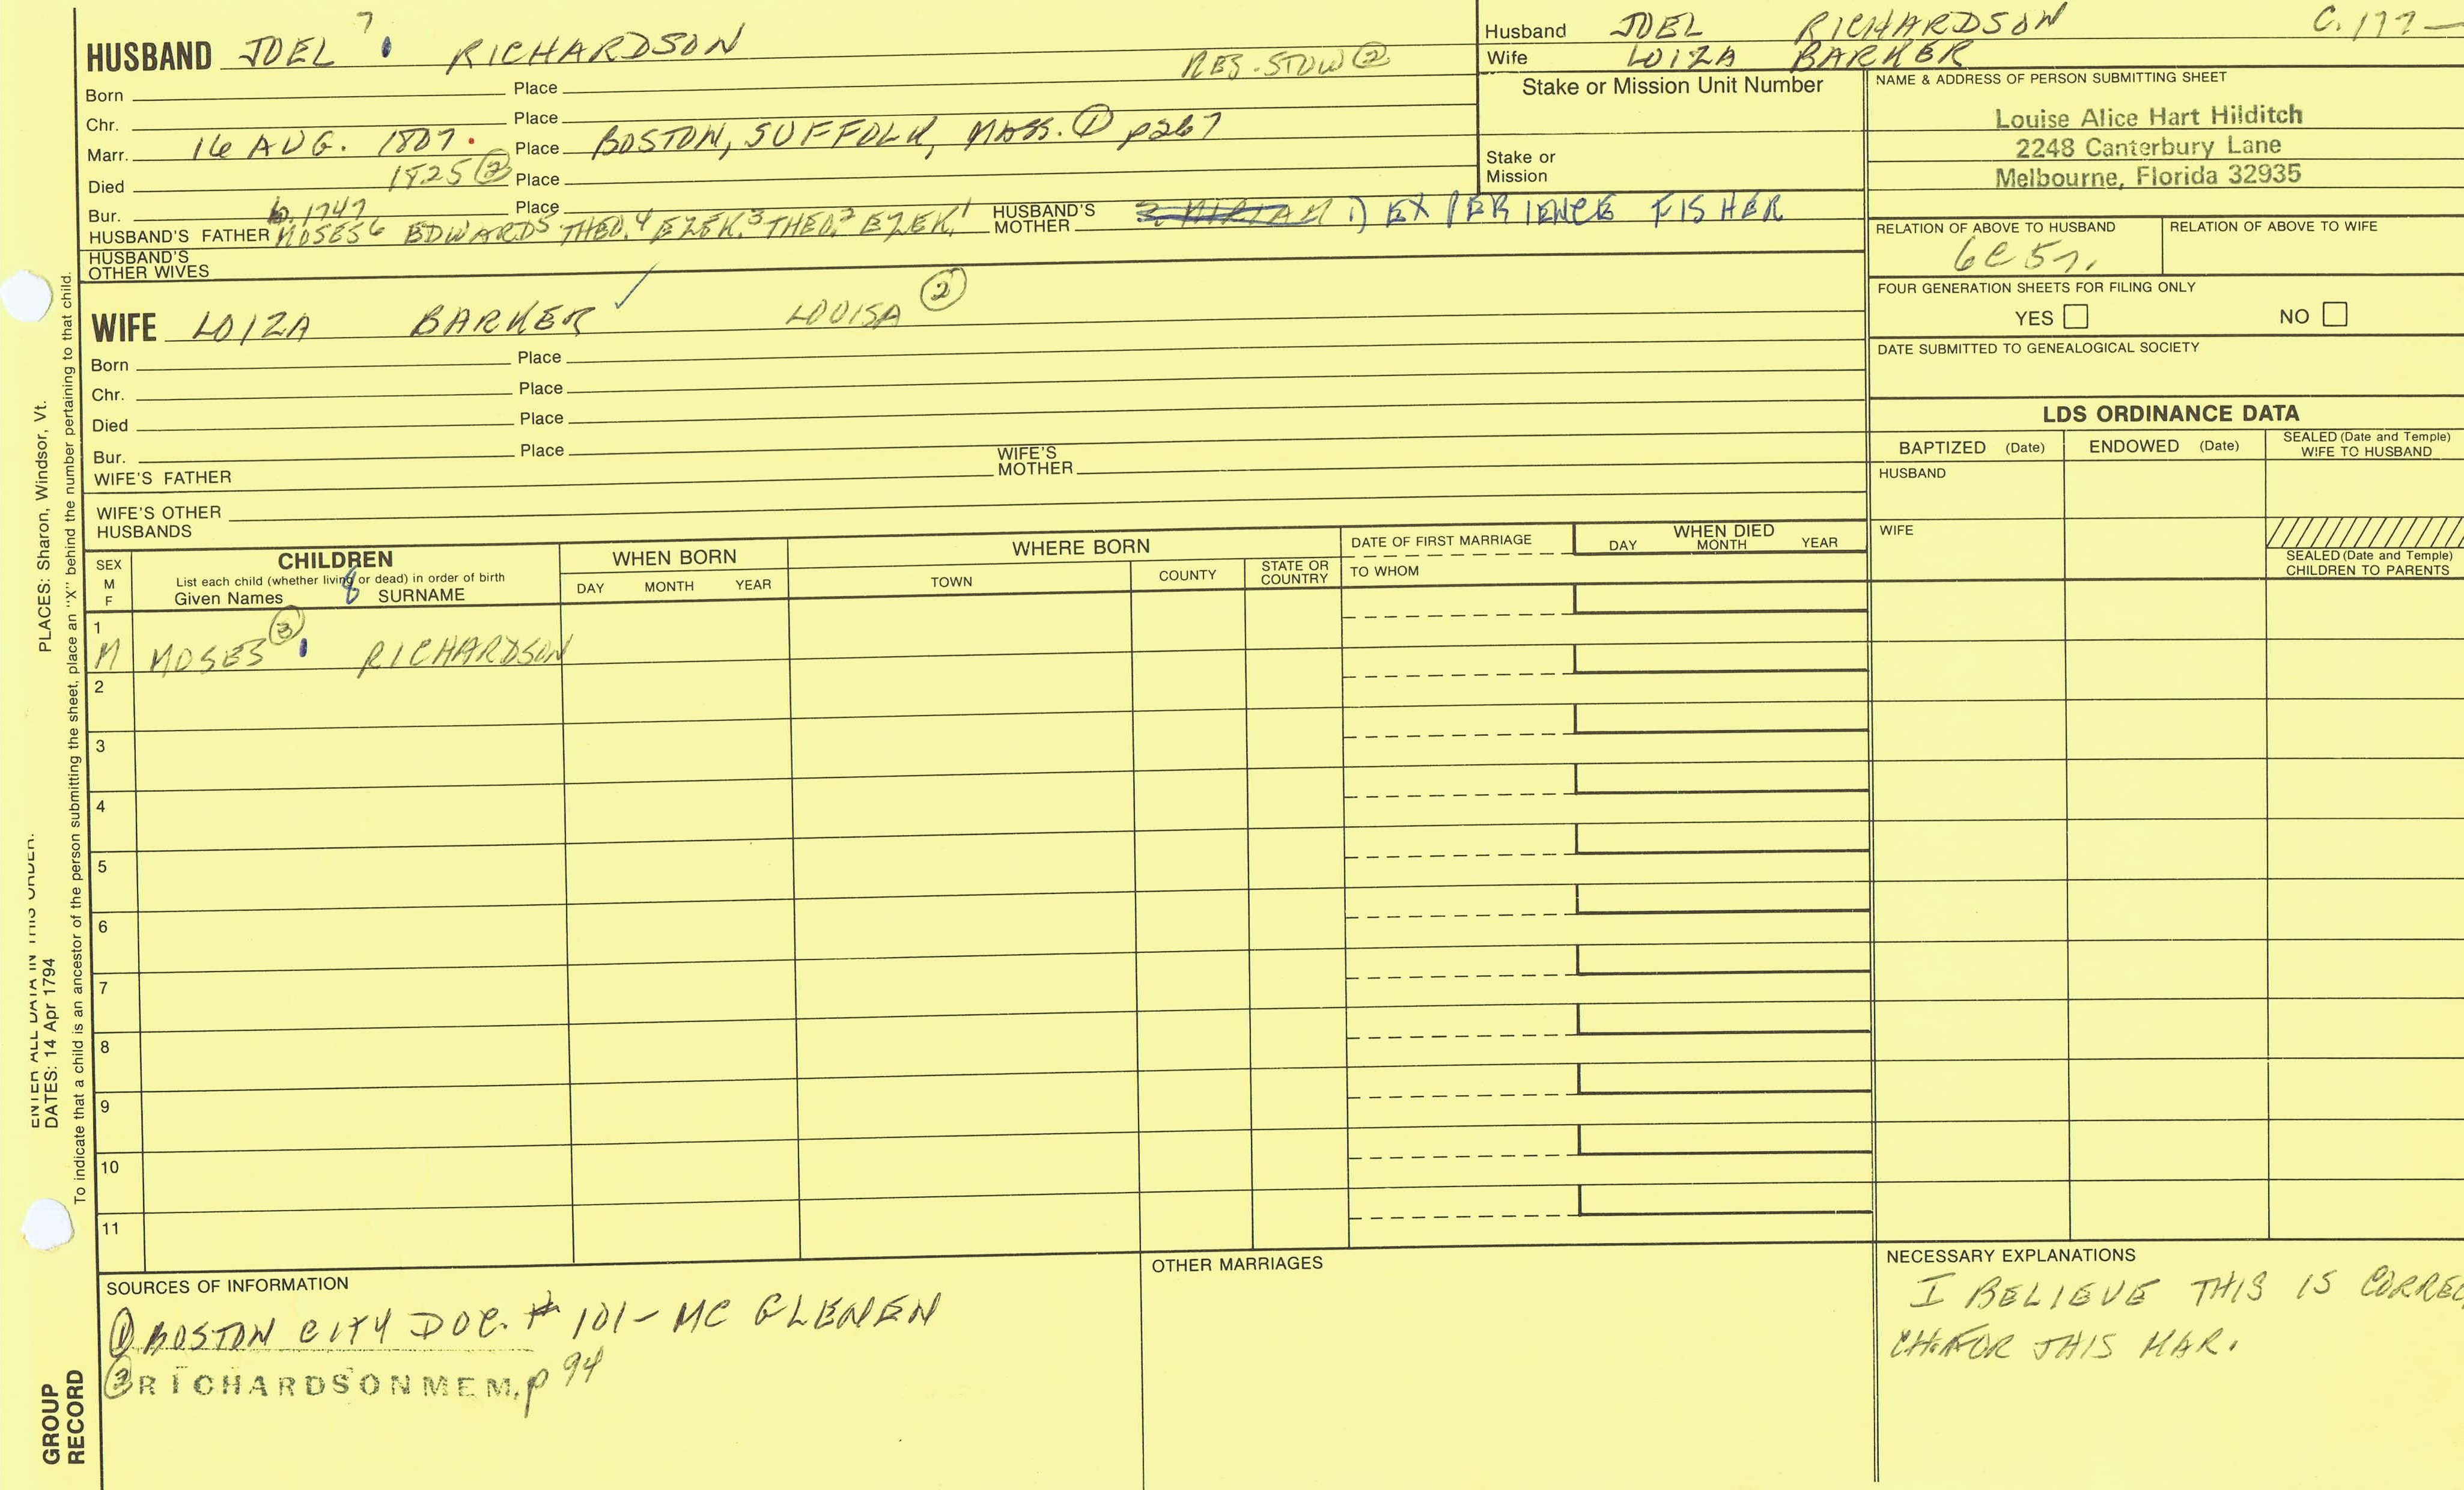 HUSBAND JOEL 7 RICHARDSON
RES. STOW ②
Born Place
Chr. Place
Marr. 16 AUG. 1807. Place BOSTON, SUFFOLK, MASS. ① p267
Died 1825 ② Place
Bur. Place
b. 1747
HUSBAND'S FATHER MOSES6 EDWARD5 THEO.4 EZEK.3 THEO.2 EZEK.1 HUSBAND'S MOTHER 2 MIRIAM 1) EXPERIENCE FISHER
HUSBAND'S OTHER WIVES
WIFE LOIZA BARKER ✓ LOUISA ②
Born Place
Chr. Place
Died Place
Bur. Place
WIFE'S FATHER WIFE'S MOTHER
WIFE'S OTHER HUSBANDS
Husband JOEL RICHARDSON C.177—
Wife LOIZA BARKER
Stake or Mission Unit Number
Stake or Mission
NAME & ADDRESS OF PERSON SUBMITTING SHEET
Louise Alice Hart Hilditch
2248 Canterbury Lane
Melbourne, Florida 32935
RELATION OF ABOVE TO HUSBAND RELATION OF ABOVE TO WIFE
6C5r.
FOUR GENERATION SHEETS FOR FILING ONLY
YES NO
DATE SUBMITTED TO GENEALOGICAL SOCIETY
LDS ORDINANCE DATA
BAPTIZED (Date) ENDOWED (Date) SEALED (Date and Temple) WIFE TO HUSBAND
HUSBAND
WIFE
SEALED (Date and Temple) CHILDREN TO PARENTS
SEX M F
CHILDREN
List each child (whether living or dead) in order of birth
Given Names 8 SURNAME
WHEN BORN
DAY MONTH YEAR
WHERE BORN
TOWN COUNTY STATE OR COUNTRY
DATE OF FIRST MARRIAGE
TO WHOM
WHEN DIED
DAY MONTH YEAR
1
M MOSES ③ RICHARDSON
2
3
4
5
6
7
8
9
10
11
SOURCES OF INFORMATION
① BOSTON CITY DOC. # 101 - MC GLENEN
② RICHARDSON MEM. p 94
OTHER MARRIAGES
NECESSARY EXPLANATIONS
I BELIEVE THIS IS CORREC
CH. FOR THIS MAR.
PLACES: Sharon, Windsor, Vt.
ENTER ALL DATA IN THIS ORDER:
DATES: 14 Apr 1794
To indicate that a child is an ancestor of the person submitting the sheet, place an "X" behind the number pertaining to that child.
GROUP RECORD